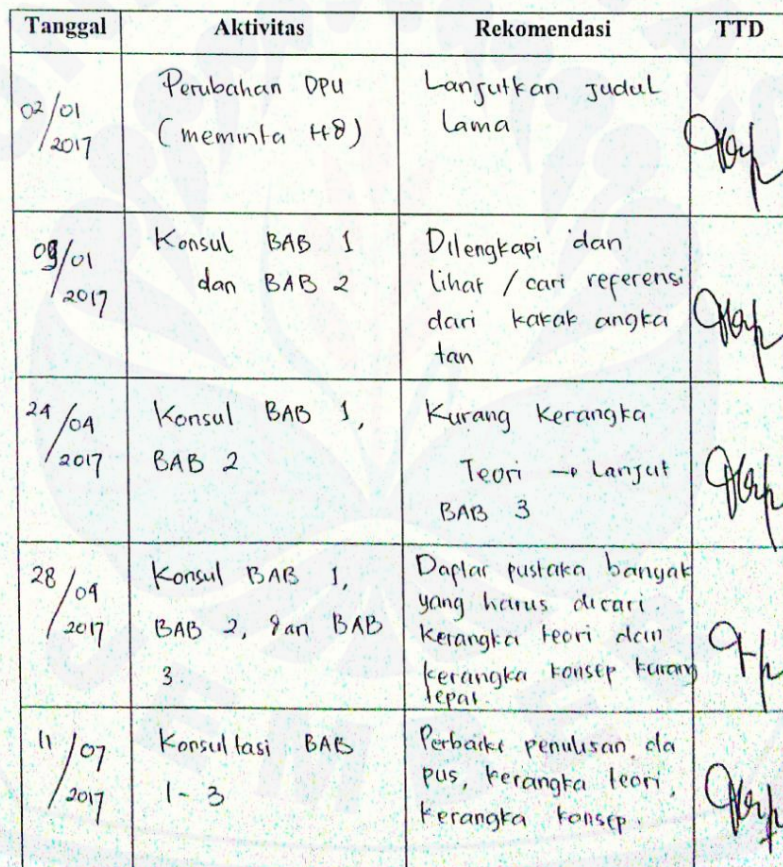 Tanggal Aktivitas Rekomendasi TTD
02/01 2017
Perubahan DPU
(meminta ttd)
Lanjutkan judul
lama
09/01 2017
Konsul BAB 1
dan BAB 2
Dilengkapi dan
lihat / cari referensi
dari kakak angka
tan
24/04 2017
Konsul BAB 1,
BAB 2
Kurang Kerangka
Teori → Lanjut
BAB 3
28/04 2017
Konsul BAB 1,
BAB 2, dan BAB
3.
Daftar pustaka banyak
yang harus dicari.
Kerangka teori dan
kerangka konsep kurang
tepat.
11/07 2017
Konsultasi BAB
1-3
Perbaiki penulisan da
pus, kerangka teori,
kerangka konsep.